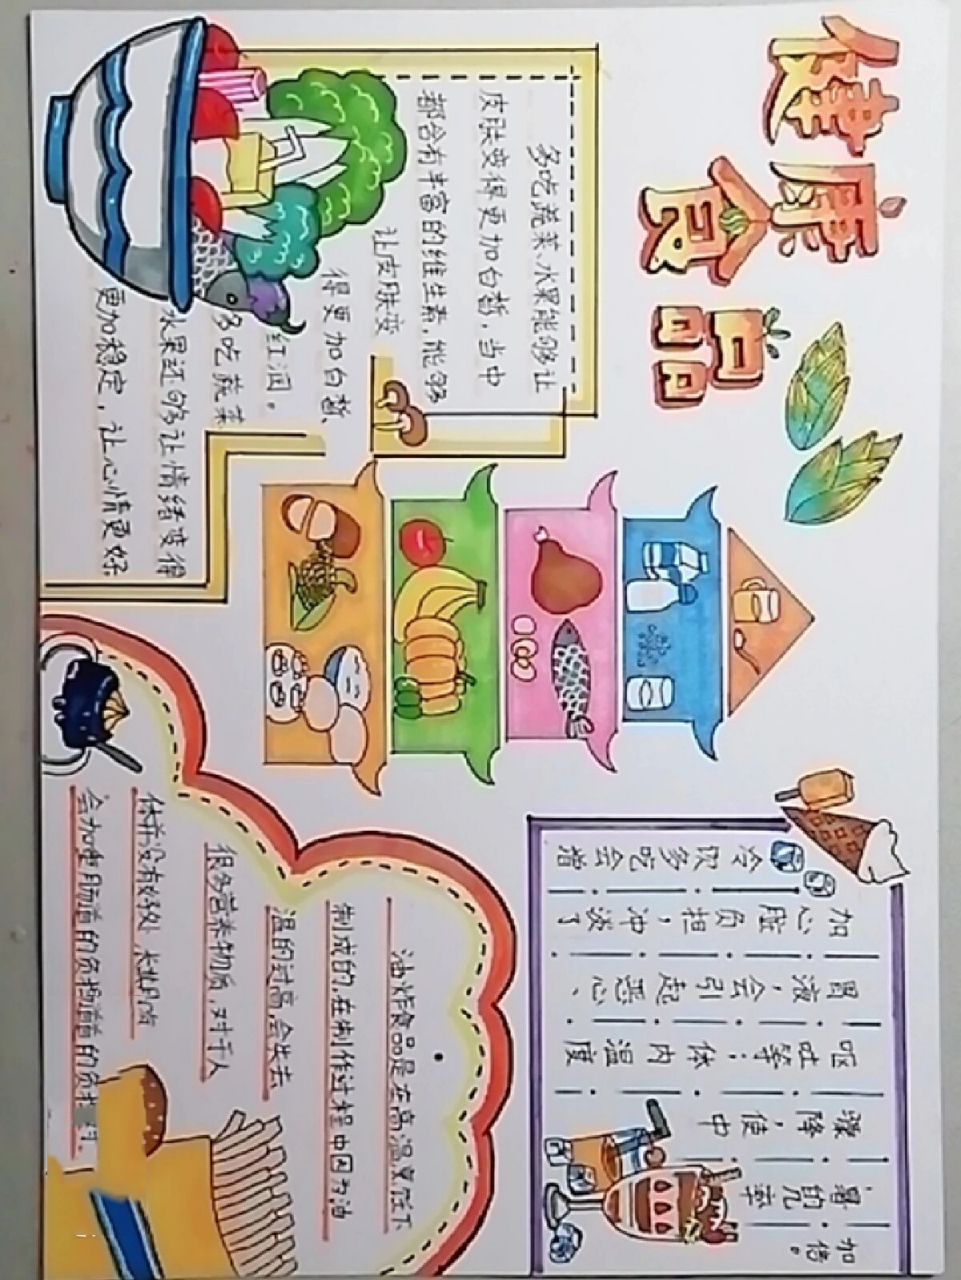 健康
食品
多吃蔬菜、水果能够让
皮肤变得更加白皙，当中
都含有丰富的维生素，能够
让皮肤变
得更加白皙、
红润，
多吃蔬菜
水果还够让情绪变得
更加稳定，让心情更好
冷饮多吃会增
加心脏负担，冲淡了
胃液，会引起恶心、
呕吐等；体内温度
骤降，使中
暑的几率
加倍。
油炸食品是在高温烹饪下
制成的，在制作过程中因为油
温的过高，会失去
很多营养物质，对于人
体并没有好处
会加重肠道的负担